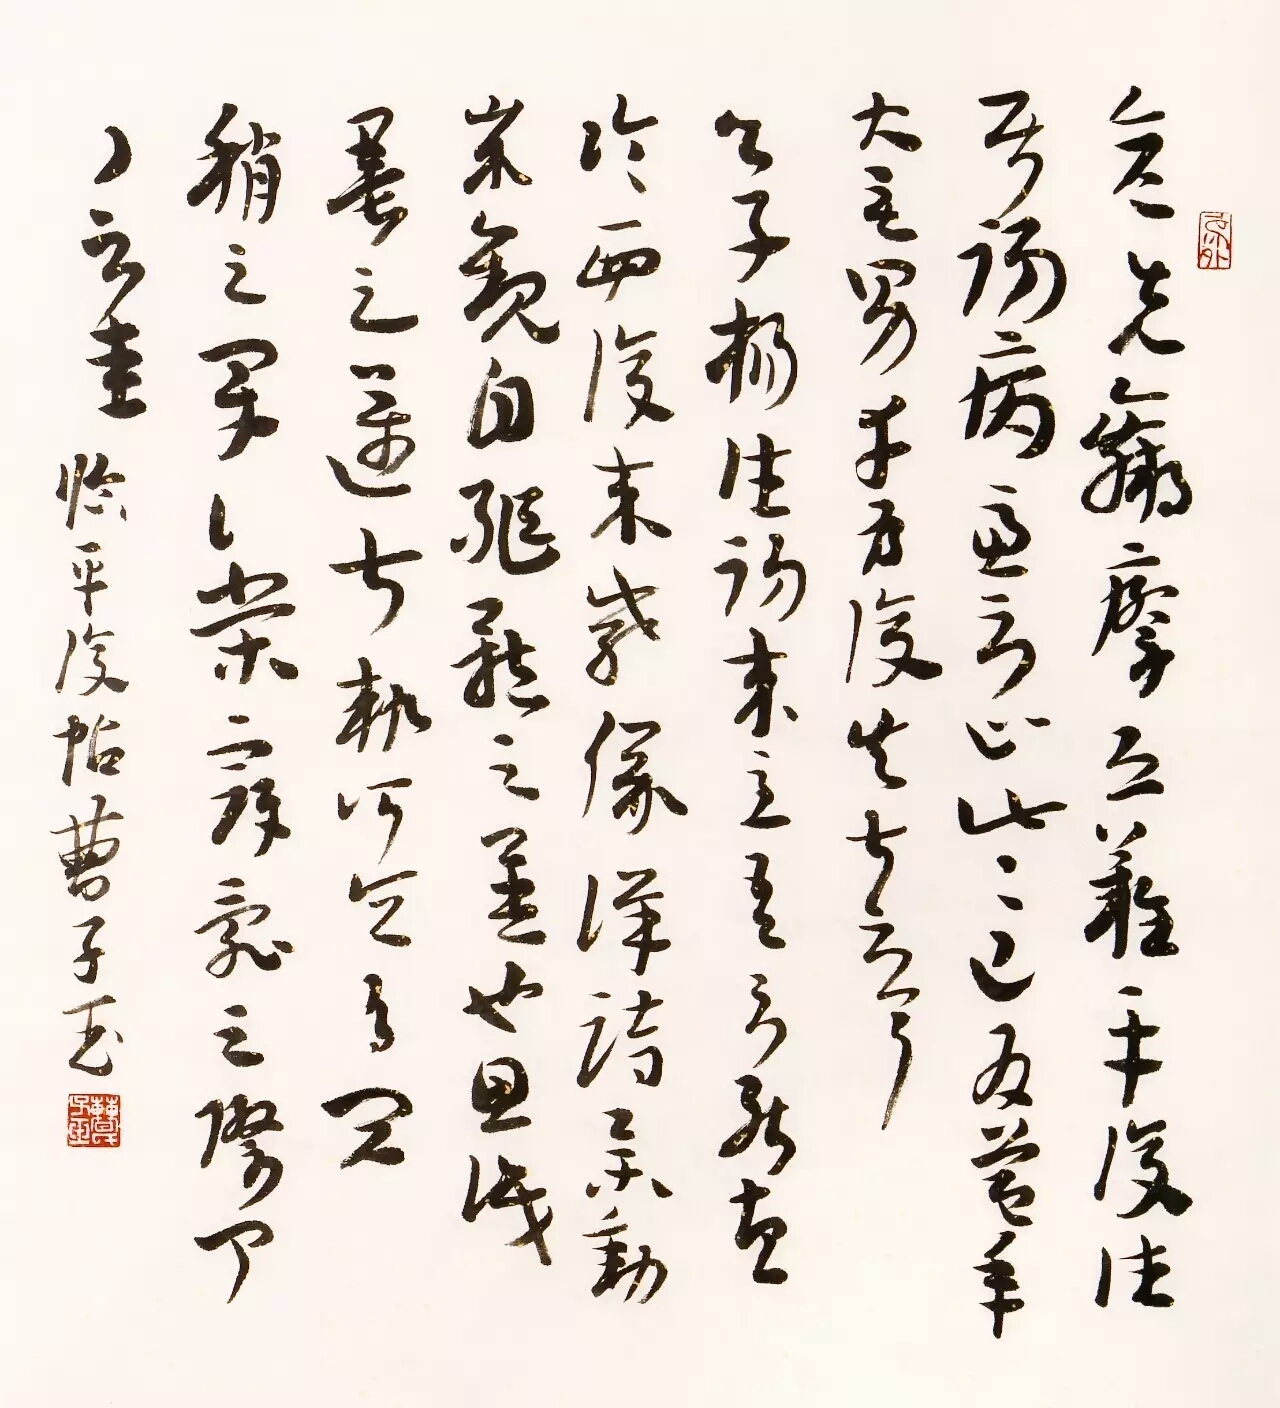 彦先羸瘵恐難平復往
屬初病慮不止此々已為慶承
使唯男幸為復失前憂耳
吳子楊往初來主吾不能盡
臨西復來威儀詳跱舉動
成觀自軀體之美也思識
量之邁前執所恒有宜
稱之夏伯榮寇亂之際聞
問不悉 臨平復帖曹子玉